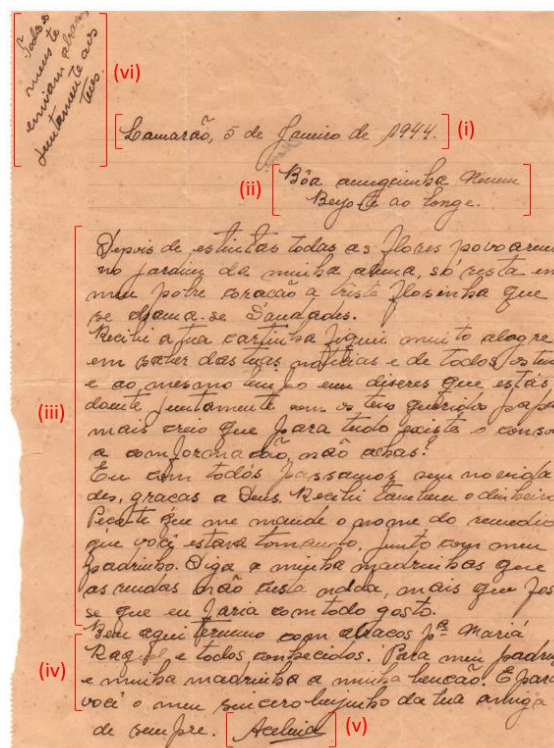 Todos
meus te
enviam abraços
juntamente aos
teus.
(vi)
Lamarão, 5 de Janeiro de 1944. (i)
(ii) Bôa amiguinha Nenem
Beijo-te ao longe.
Depois de estintas todas as flores povoarem
no jardim da minha alma, só resta em
meu pobre coração a triste florsinha que
se chama-se Saudades.
Recibi a tua cartinha fiquei muito alegre
em saber das tuas noticias e de todos os teus
e ao mesmo tempo em diseres que estás
(iii) doente juntamente com os teus queridos papa
mais creio que para tudo existe o conso
a comformacão, não achas?
Eu com todos passamos sem novida
des, gracas a Deus. Recibi tambem o dinheiro
Peço-te que me mande o nome do remedio
que você estava tomando, junto com meu
padrinho. Diga a minha madrinhas que
as rendas não custa nada, mais que fos
se que eu faria com todo gosto.
Bem aqui termino com abracos pª Mariá
(iv) Raquel e todos conhecidos. Para meu padri
e minha madrinha a minha bencão. E para
você o meu sincero beijinho da tua amiga
de sempre. Acelina (v)